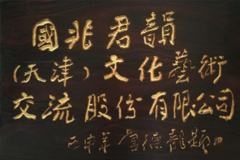 國兆君韻
（天津）文化藝術
交流股份有限公司